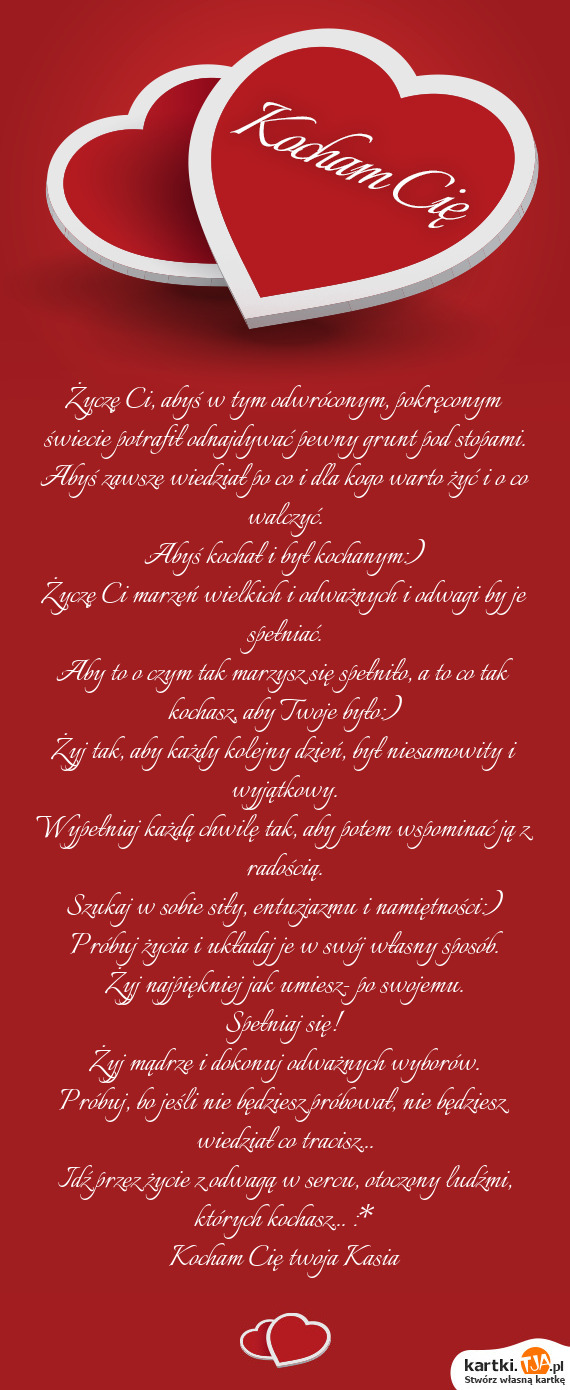 Kocham Cię
Życzę Ci, abyś w tym odwróconym, pokręconym
świecie potrafił odnajdywać pewny grunt pod stopami.
Abyś zawszę wiedział po co i dla kogo warto żyć i o co
walczyć.
Abyś kochał i był kochanym:)
Życzę Ci marzeń wielkich i odważnych i odwagi by je
spełniać.
Aby to o czym tak marzysz się spełniło, a to co tak
kochasz, aby Twoje było:)
Żyj tak, aby każdy kolejny dzień, był niesamowity i
wyjątkowy.
Wypełniaj każdą chwilę tak, aby potem wspominać ją z
radością.
Szukaj w sobie siły, entuzjazmu i namiętności:)
Próbuj życia i układaj je w swój własny sposób.
Żyj najpiękniej jak umiesz- po swojemu.
Spełniaj się!
Żyj mądrze i dokonuj odważnych wyborów.
Próbuj, bo jeśli nie będziesz próbował, nie będziesz
wiedział co tracisz...
Idź przez życie z odwagą w sercu, otoczony ludźmi,
których kochasz... :*
Kocham Cię twoja Kasia
kartki.TJA.pl
Stwórz własną kartkę